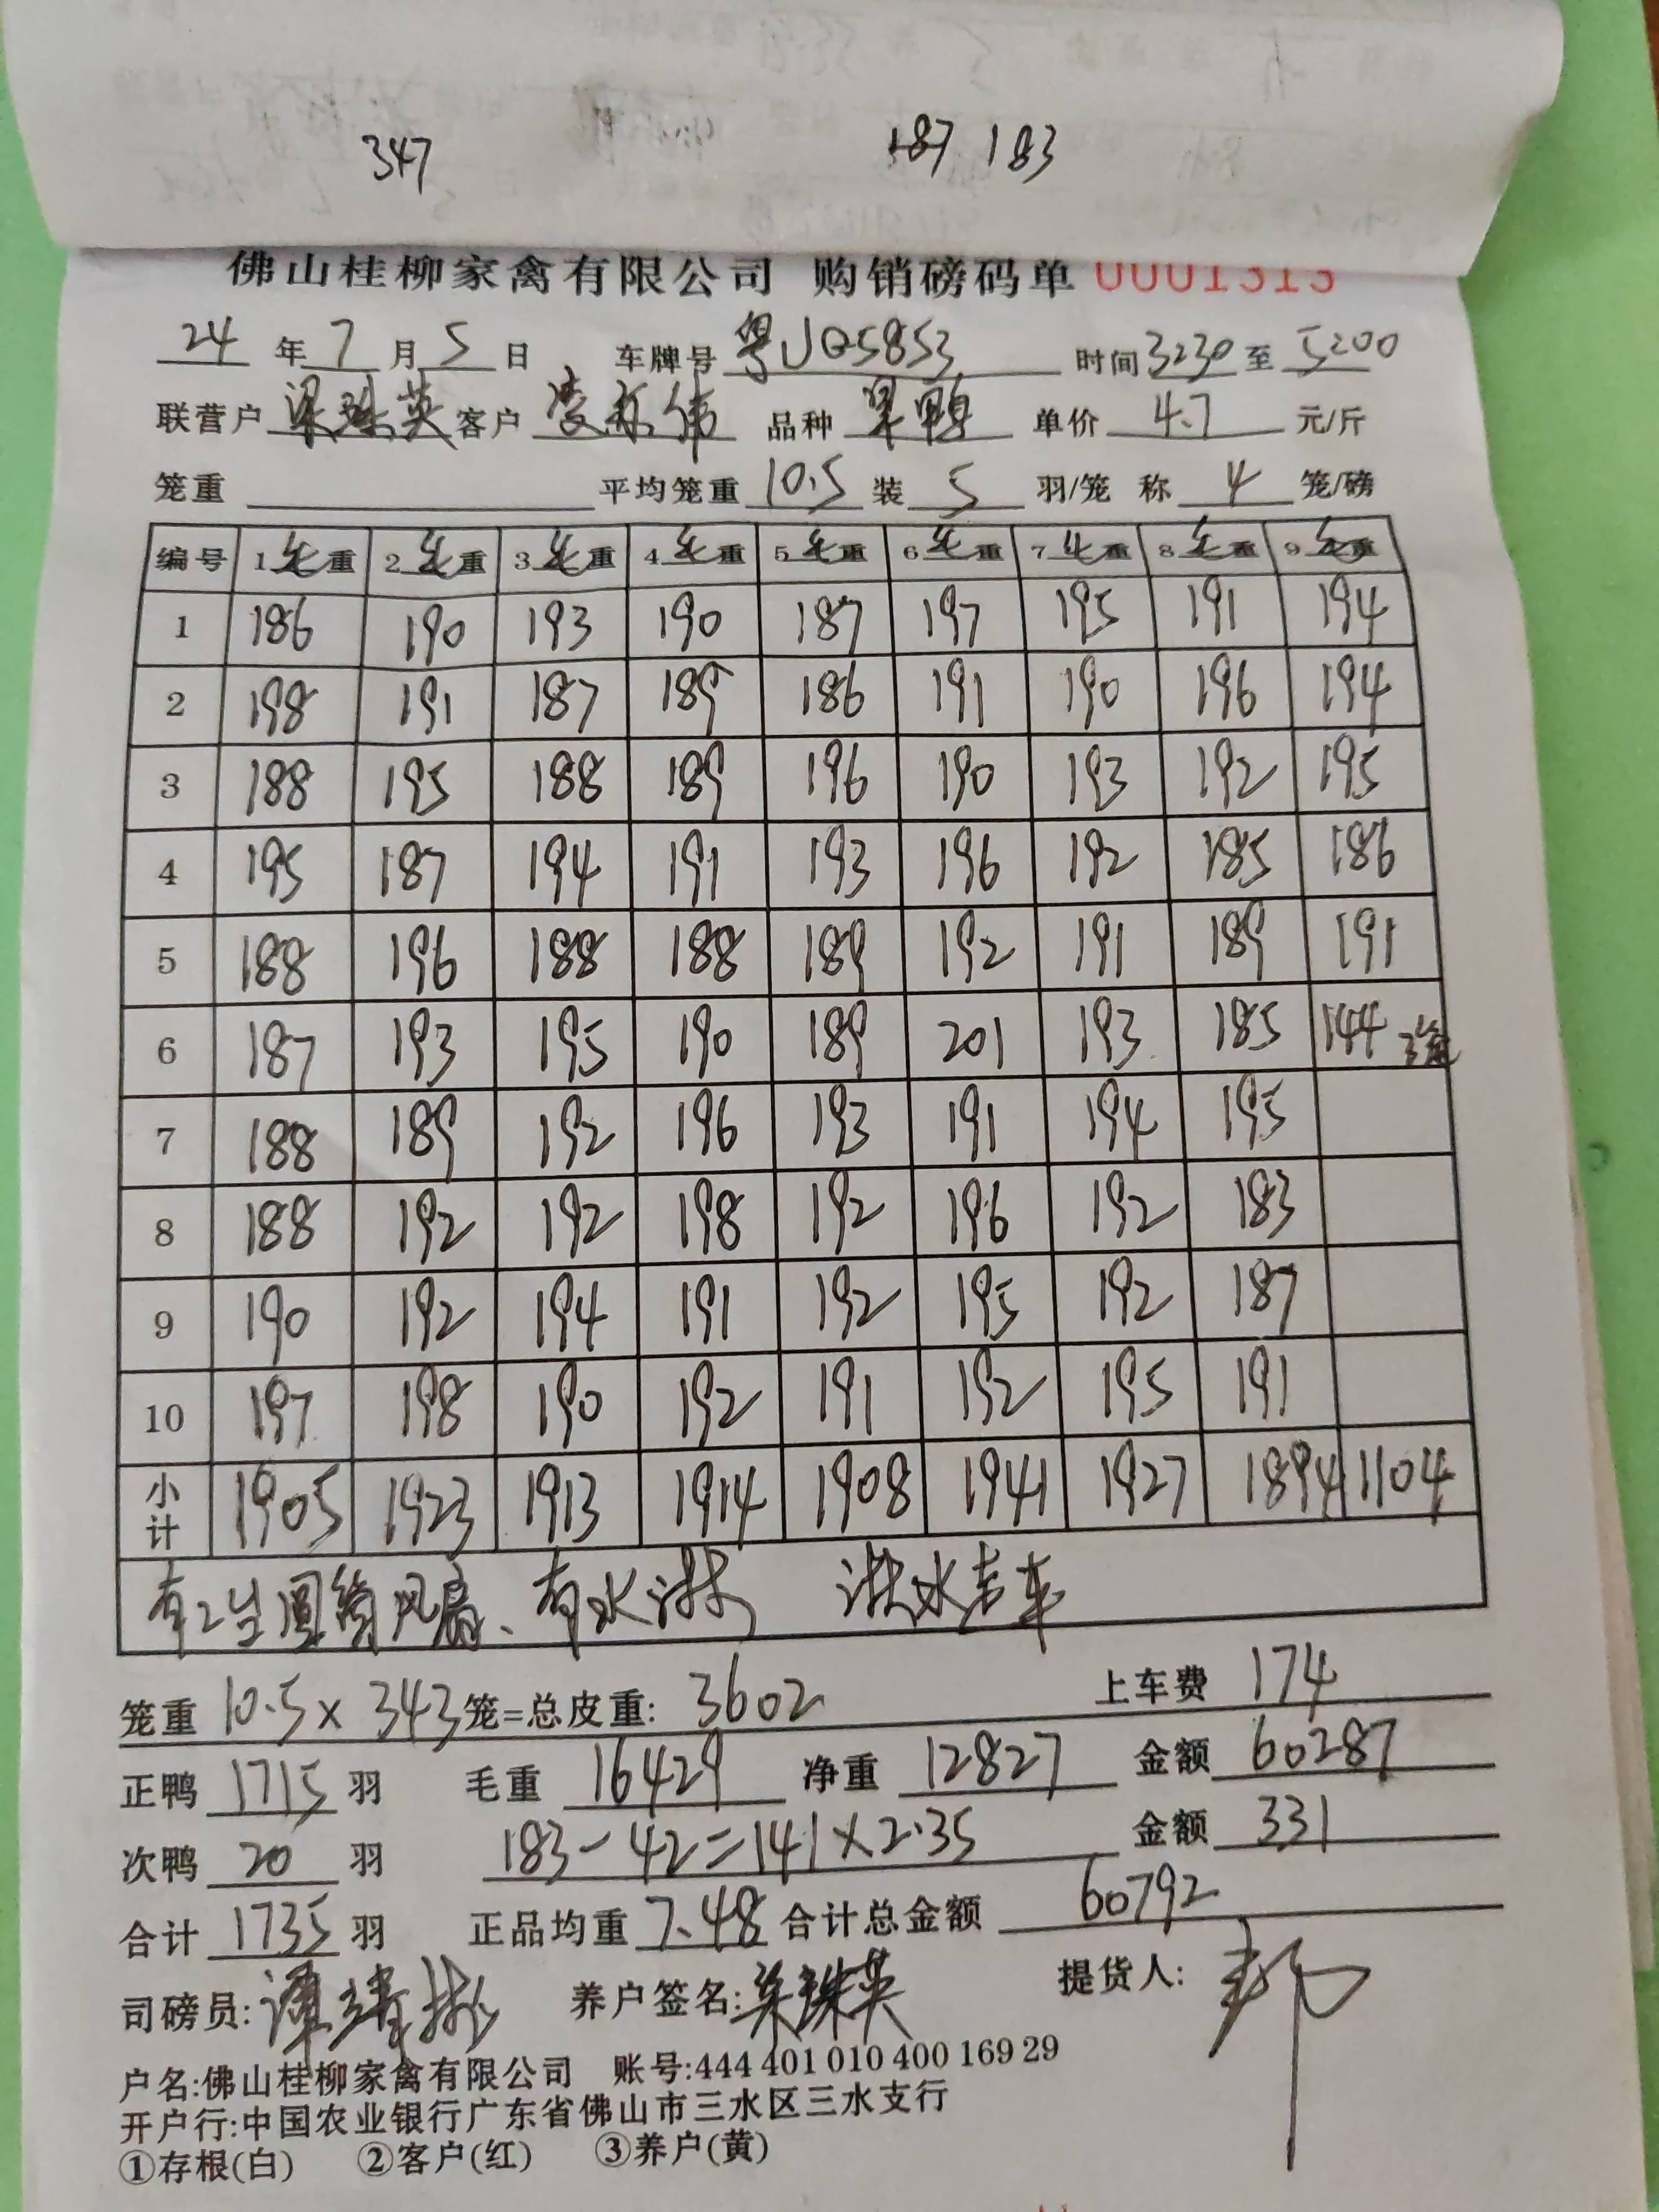 347 187 183
佛山桂柳家禽有限公司 购销磅码单 0001313
24 年 7 月 5 日 车牌号 粤JQ5853 时间 3230 至 5200
联营户 梁珠英 客户 品种 单价 4.7 元/斤
笼重 平均笼重 10.5 装 5 羽/笼 称 4 笼/磅
编号 1 毛重 2 毛重 3 毛重 4 毛重 5 毛重 6 毛重 7 毛重 8 毛重 9 毛重
1 186 190 193 190 187 197 195 191 194
2 198 191 187 189 186 191 190 196 194
3 188 195 188 189 196 190 193 192 195
4 195 187 194 191 193 196 192 185 186
5 188 196 188 188 189 192 191 189 191
6 187 193 195 190 189 201 193 185 144 3笼
7 188 189 192 196 193 191 194 195
8 188 192 192 198 192 196 192 183
9 190 192 194 191 192 195 192 187
10 197 198 190 192 191 192 195 191
小计 1905 1923 1913 1914 1908 1941 1927 1894 1104
有2台圆筒风扇、有水淋 洪水吉车
笼重 10.5 × 343 笼=总皮重: 3602 上车费 174
正鸭 1715 羽 毛重 16429 净重 12827 金额 60287
次鸭 20 羽 183-42=141×2.35 金额 331
合计 1735 羽 正品均重 7.48 合计总金额 60792
司磅员: 养户签名: 梁珠英 提货人:
户名:佛山桂柳家禽有限公司 账号:444 401 010 400 169 29
开户行:中国农业银行广东省佛山市三水区三水支行
①存根(白) ②客户(红) ③养户(黄)